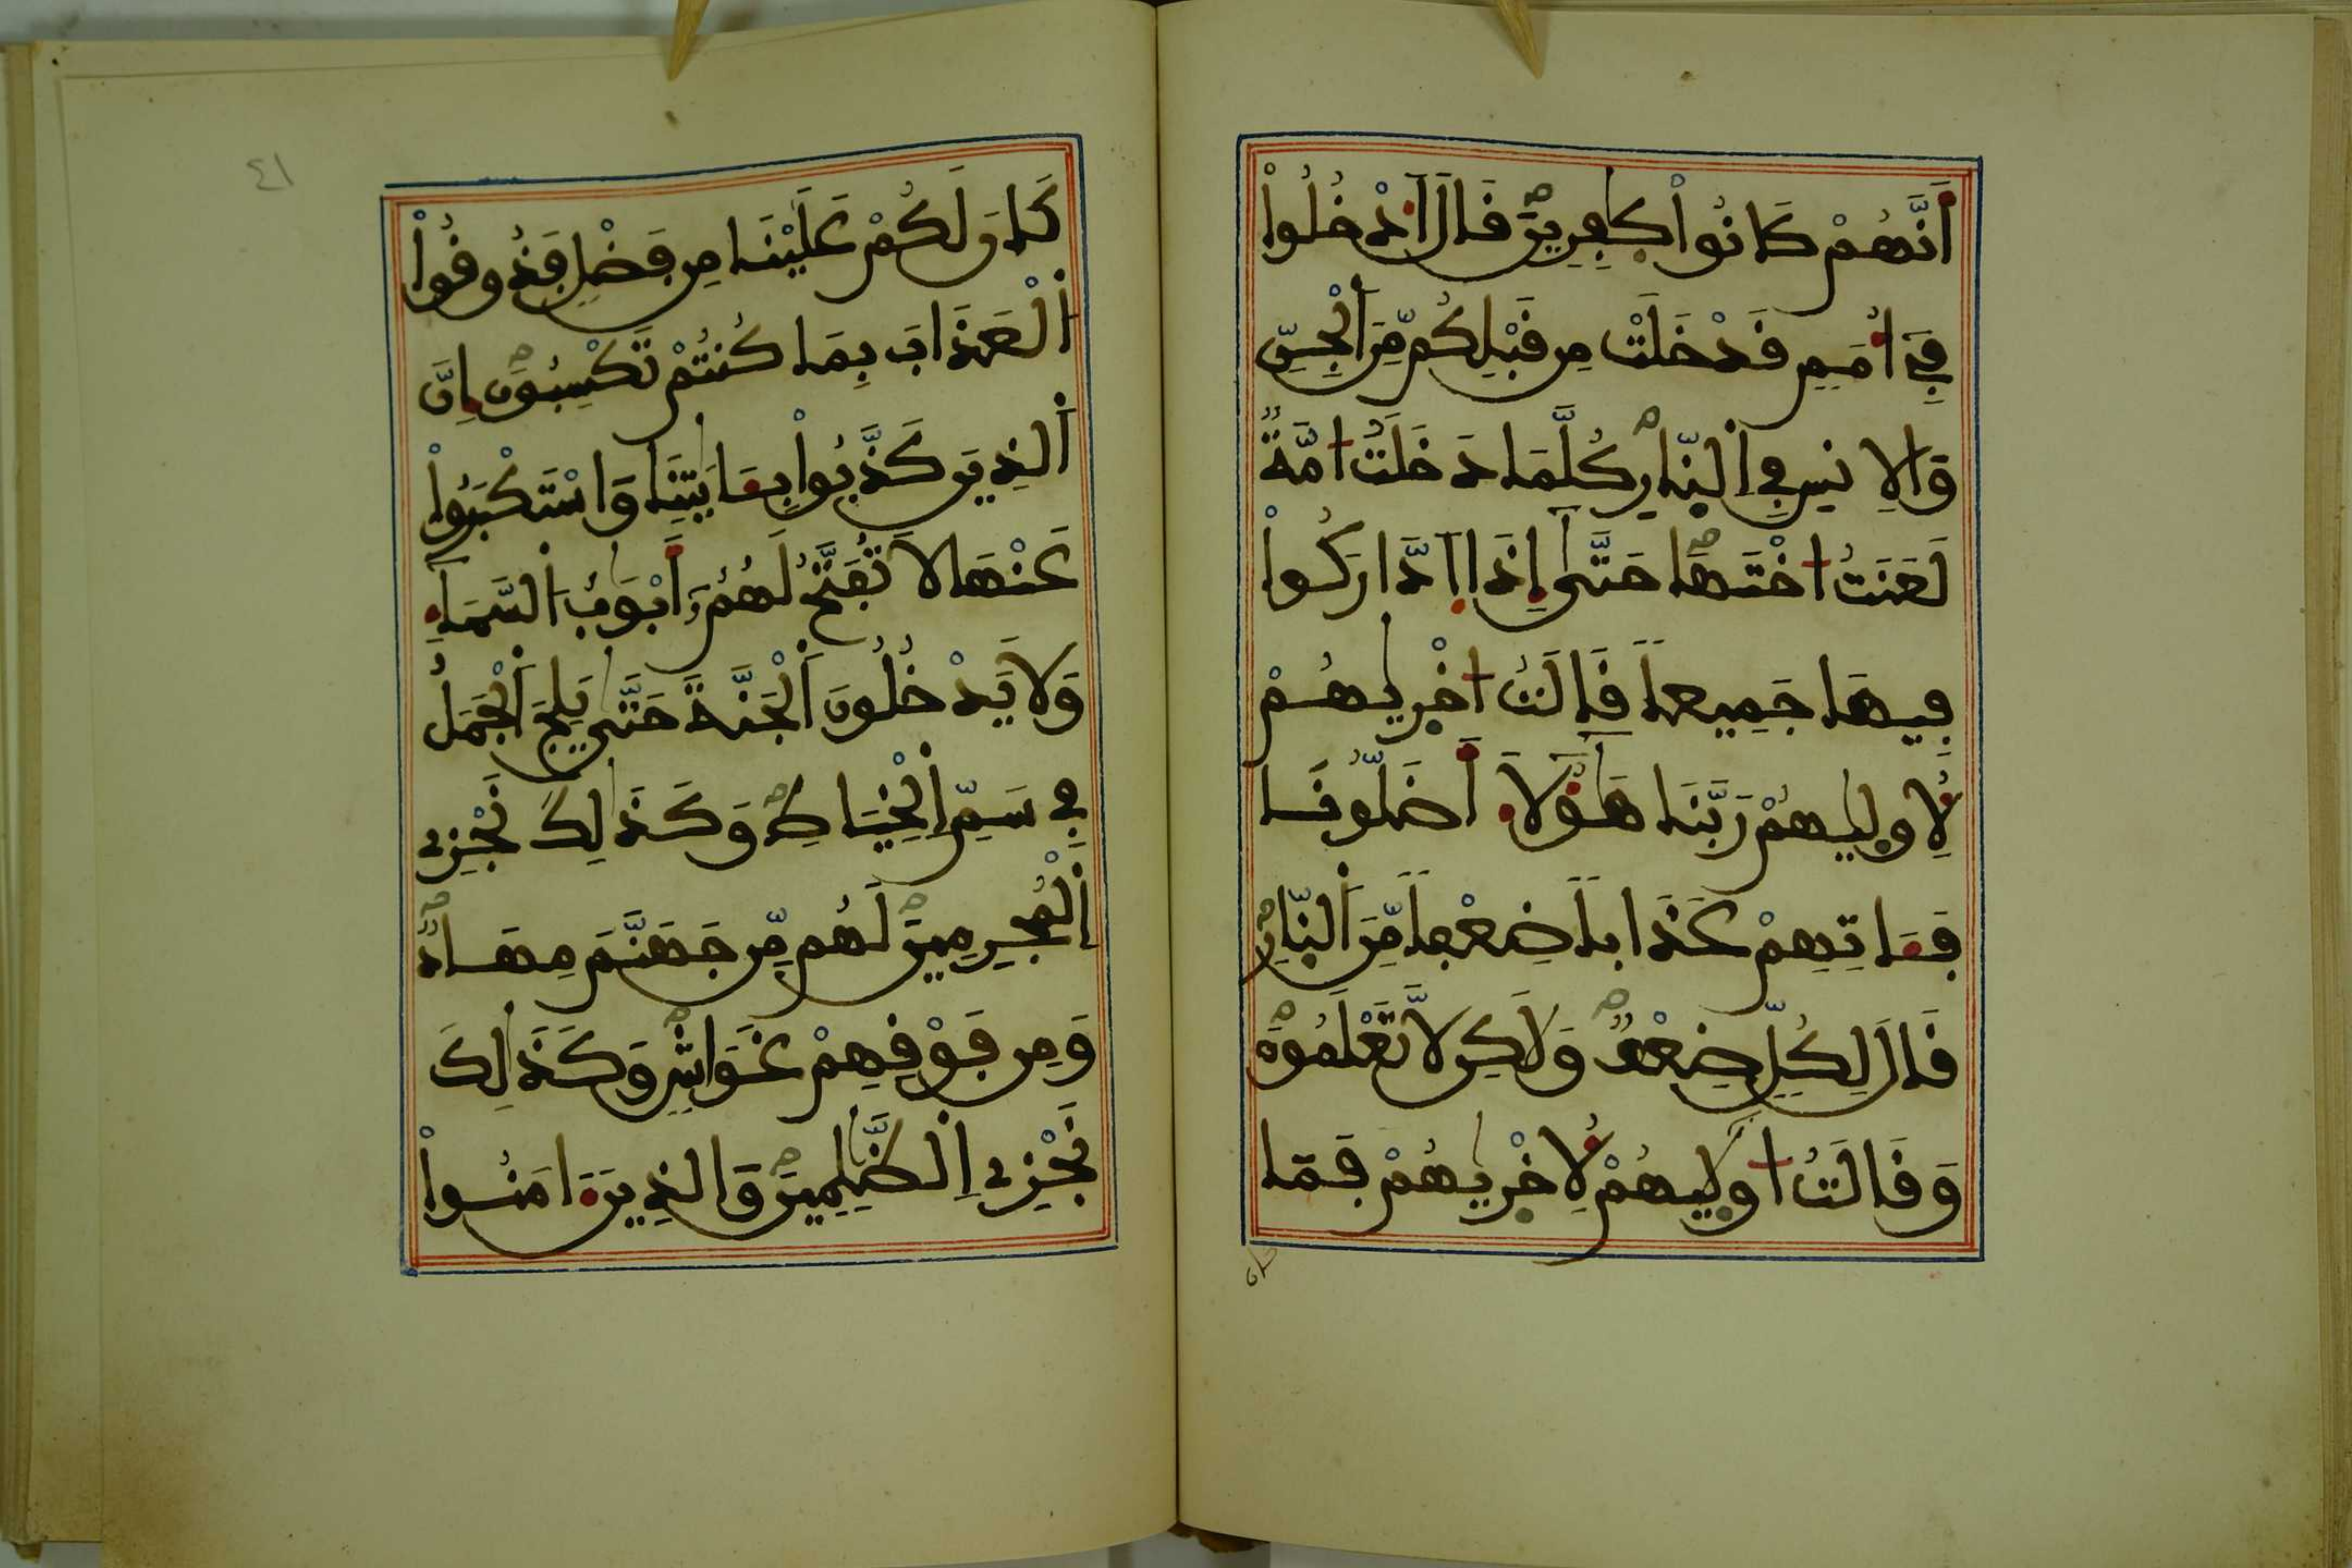 أَنَّهُمْ كَانُواْ كٰفِرِينَۖ قَالَ اَ۟دْخُلُواْ
فِےٓ أُمَمٖ قَدْ خَلَتْ مِن قَبْلِكُم مِّنَ اَ۬لْجِنِّ
وَالِانسِ فِے اِ۬لنّ۪ارِۖ كُلَّمَا دَخَلَتُ ا۟مَّةٞ
لَّعَنَتُ ا۟خْتَهَاۖ حَتَّىٰٓ إِذَا اَ۪دَّارَكُواْ
فِيهَا جَمِيعاٗ قَالَتُ ا۟خْر۪يٰهُمْ
لِأُول۪يٰهُمْ رَبَّنَا هَٰٓؤُلَآءِ أَضَلُّونَا
فَـَٔاتِهِمْ عَذَاباٗ ضِعْفاٗ مِّنَ اَ۬لنّ۪ارِۖ
قَالَ لِكُلّٖ ضِعْفٞۖ وَلَٰكِن لَّا تَعْلَمُونَۖ
وَقَالَتُ ا۟ول۪يٰهُمْ لِأُخْر۪يٰهُمْ فَمَا
كان
٤١
كَانَ لَكُمْ عَلَيْنَا مِن فَضْلٖ فَذُوقُواْ
اُ۬لْعَذَابَ بِمَا كُنتُمْ تَكْسِبُونَۖ إِنَّ
اَ۬لذِينَ كَذَّبُواْ بِـَٔايَٰتِنَا وَاسْتَكْبَرُواْ
عَنْهَا لَا تُفَتَّحُ لَهُمُۥٓ أَبْوَٰبُ اُ۬لسَّمَآءِ
وَلَا يَدْخُلُونَ اَ۬لْجَنَّةَ حَتَّىٰ يَلِجَ اَ۬لْجَمَلُ
فِے سَمِّ اِ۬لْخِيَاطِۖ وَكَذَٰلِكَ نَجْزِے
اِ۬لْمُجْرِمِينَۖ لَهُم مِّن جَهَنَّمَ مِهَادٞۖ
وَمِن فَوْقِهِمْ غَوَاشٖۖ وَكَذَٰلِكَ
نَجْزِے اِ۬لظَّٰلِمِينَۖ وَالذِينَ ءَامَنُواْ